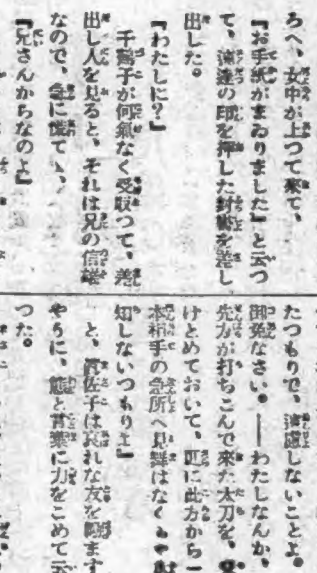 ろへ、女中が上つて來て、
『お手紙がまゐりました』と云つ
て、速達の印を押した封書を差し
出した。
『わたしに？』
千鶴子が何氣なく受取つて、差
出し人を見ると、それは兄の信雄
なので、急に慌てゝ、
『兄さんからなのよ』
たつもりで、遠慮しないことよ。
御免なさい。――わたしなんか、
先方が打ちこんで來た太刀を、
けとめておいて、更に此方から一
本相手の急所へ見舞はなくちや
知しないつもりよ』
と、眞佐子は哀れな友を勵ます
やうに、態と言葉に力をこめて云
つた。